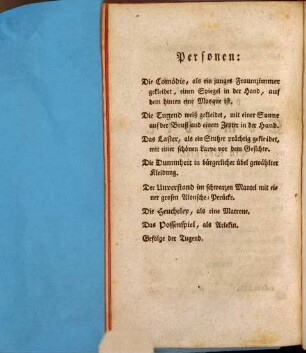 Personen:
Die Comödie, als ein junges Frauenzimmer
gekleidet, einen Spiegel in der Hand, auf
dem hinten eine Masque ist.
Die Tugend weiß gekleidet, mit einer Sonne
auf der Brust und einem Zepter in der Hand.
Das Laster, als ein Stutzer prächtig gekleidet,
mit einer schönen Larve vor dem Gesichte.
Die Dummheit in bürgerlicher übel gewählter
Kleidung.
Der Unverstand im schwarzen Mantel mit ei-
ner grosen Perücke.
Die Heucheley, als eine Matrone.
Das Possenspiel, als Arlekin.
Gefolge der Tugend.